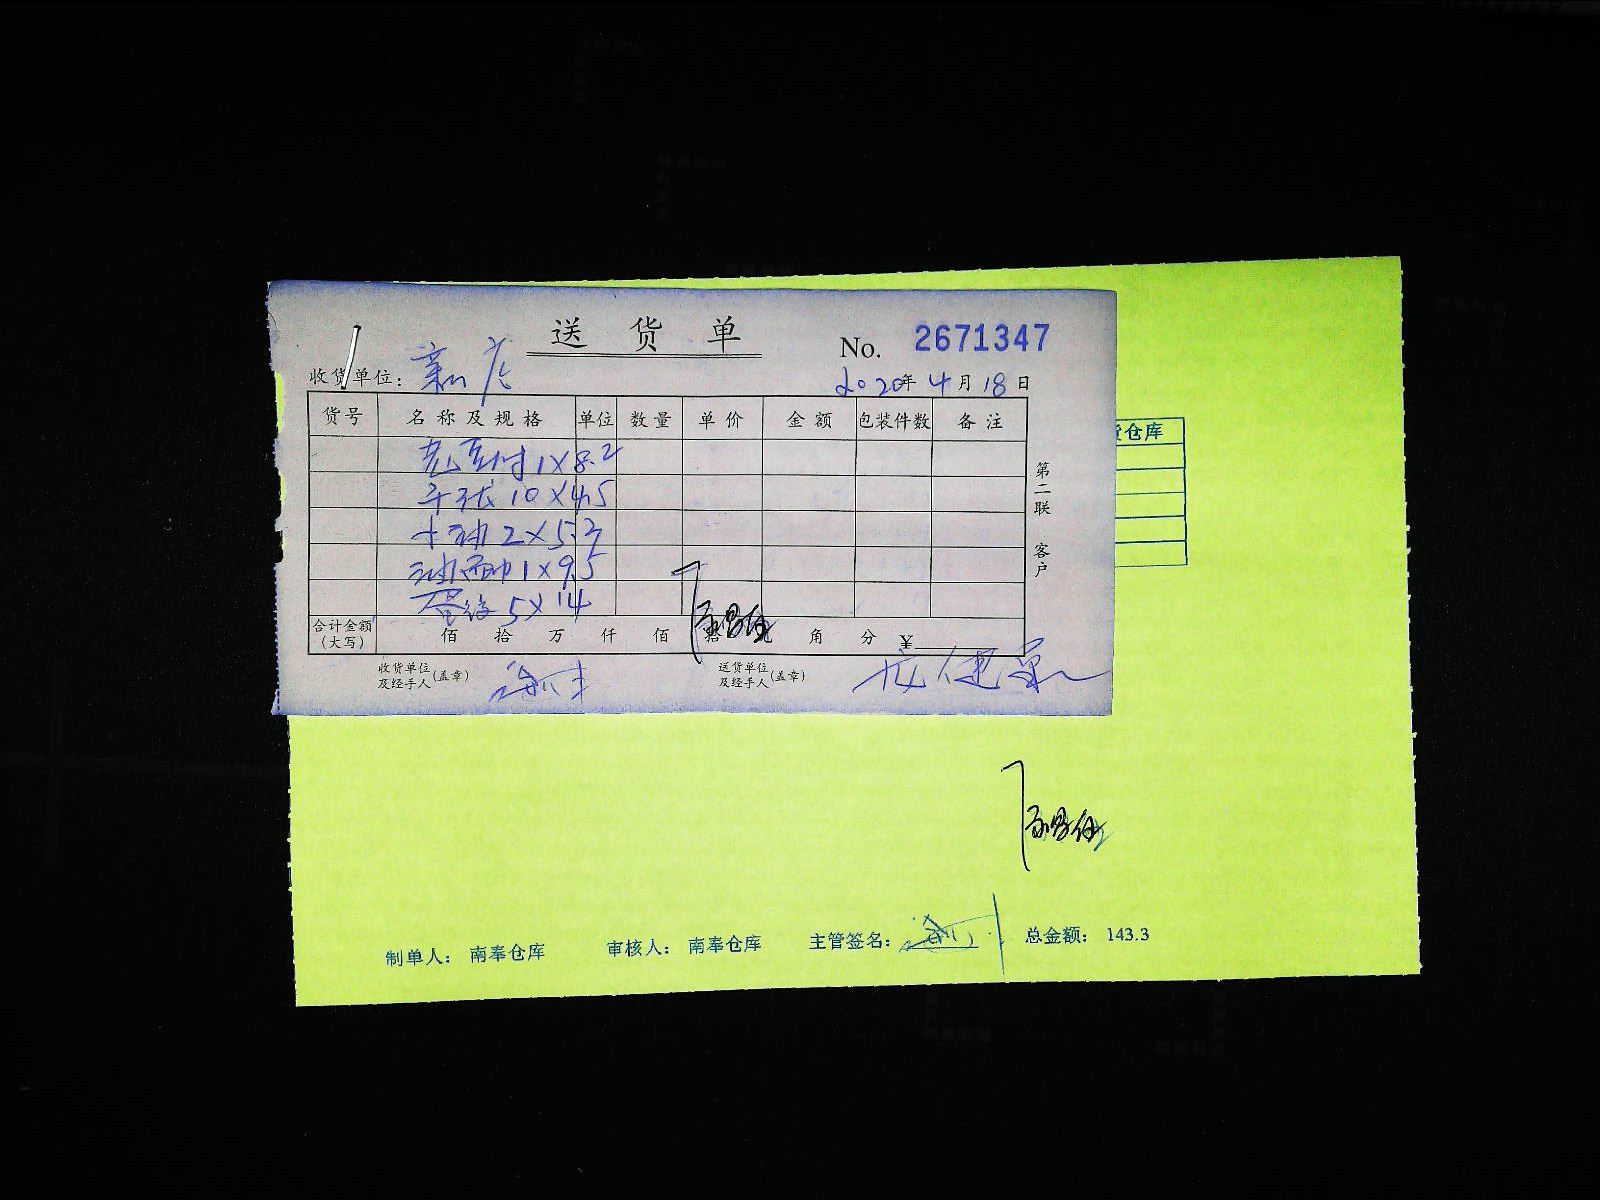 送货单
No. 2671347
收货单位：新店
2020年4月18日
货号 名称及规格 单位 数量 单价 金额 包装件数 备注
老豆付 1×8.2
千张 10×4.5
1×9.5
5×14
合计金额（大写） 佰 拾 万 仟 佰 元 角 分 ¥
收货单位及经手人(盖章)
送货单位及经手人(盖章)
第二联 客户
仓库
制单人： 南奉仓库 审核人： 南奉仓库 主管签名： 总金额： 143.3